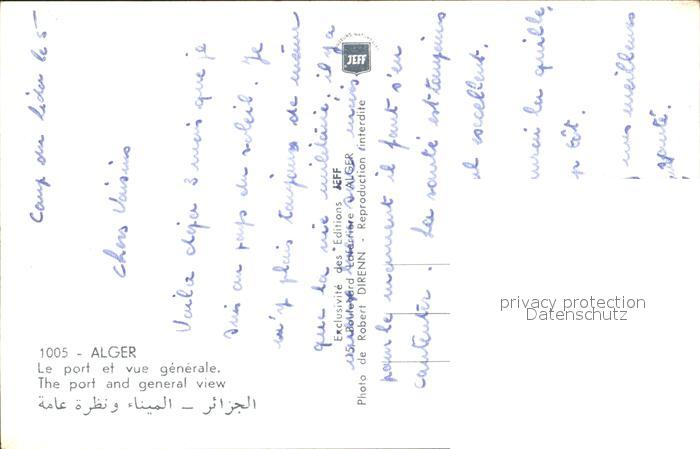 Camp du Lido le 5
Chers Voisins
Voila deja 3 mois que je
suis au pays du soleil. Je
m'y plais toujours de même
que la vie militaire, il y a
pour le moment il faut s'en
contenter. La santé est toujours
et excellent.
la quille,
tôt.
mes meilleurs
santé.
JEFF
Exclusivité des Editions JEFF
ALGER
Photo de Robert DIRENN - Reproduction interdite
1005 - ALGER
Le port et vue générale.
The port and general view
الجزائر – الميناء ونظرة عامة
privacy protection
Datenschutz